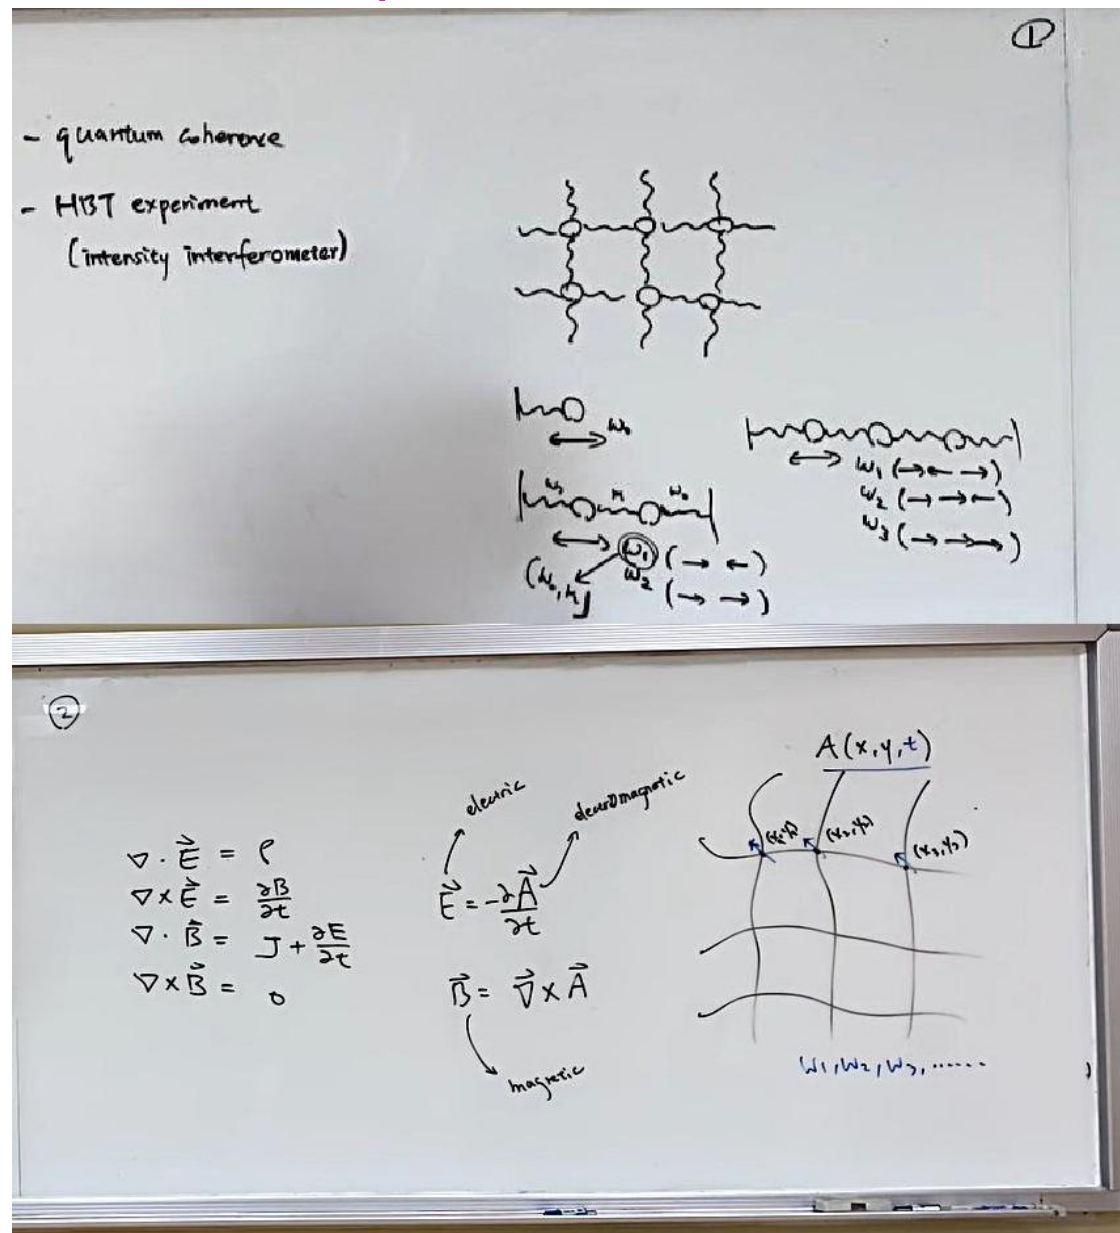 ①
- quantum coherence
- HBT experiment
(intensity interferometer)
ω₀
ω₁ (→← →)
ω₂ (→ →←)
ω₃ (→ →→)
ω₀ κ ω₀
ω₁ (→ ←)
ω₂ (→ →)
(ω₀, κ)
②
∇·E⃗ = ρ
∇×E⃗ = ∂B/∂t
∇·B⃗ = J + ∂E/∂t
∇×B⃗ = 0
electric
electromagnetic
E⃗ = -∂A⃗/∂t
B⃗ = ∇⃗ × A⃗
magnetic
A(x,y,t)
(x₂,y₂)
(x₃,y₃)
ω₁, ω₂, ω₃, ......